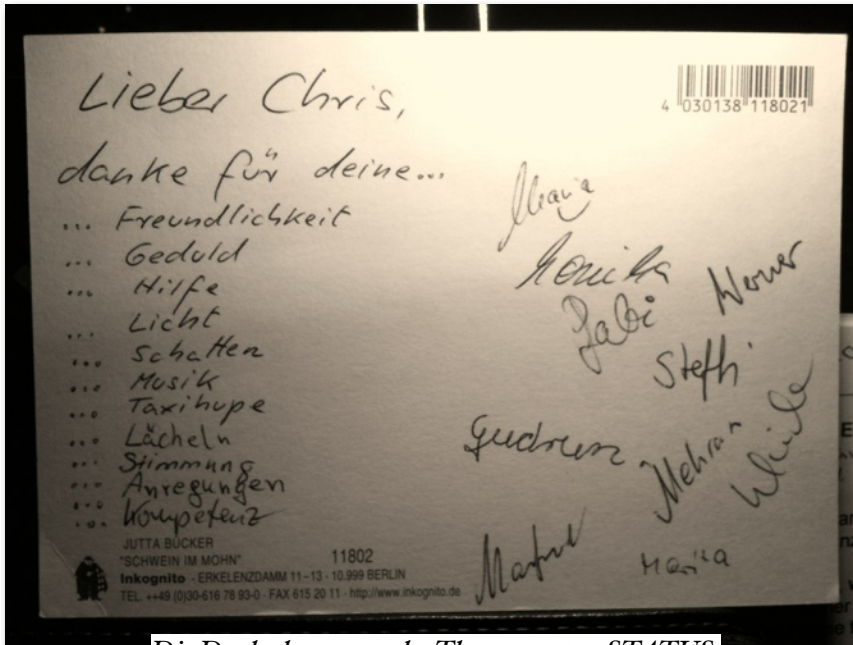 Lieber Chris,
4 030138 118021
danke für deine...
... Freundlichkeit
... Geduld
... Hilfe
... Licht
... Schatten
... Musik
... Taxihupe
... Lächeln
... Stimmung
... Anregungen
... Kompetenz
Monika
Gabi
Werner
Steffi
Gudrun
Mehran
Manfred
Marika
JUTTA BÜCKER
"SCHWEIN IM MOHN" 11802
Inkognito - ERKELENZDAMM 11-13 - 10.999 BERLIN
TEL. ++49 (0)30-616 78 93-0 - FAX 615 20 11 - http://www.inkognito.de